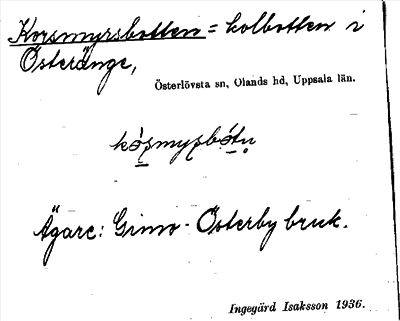 Korsmyrsbotten = kolbotten i
Österänge,
Österlövsta sn, Olands hd, Uppsala län.
Ägare: Gimo-Österby bruk.
Ingegärd Isaksson 1936.